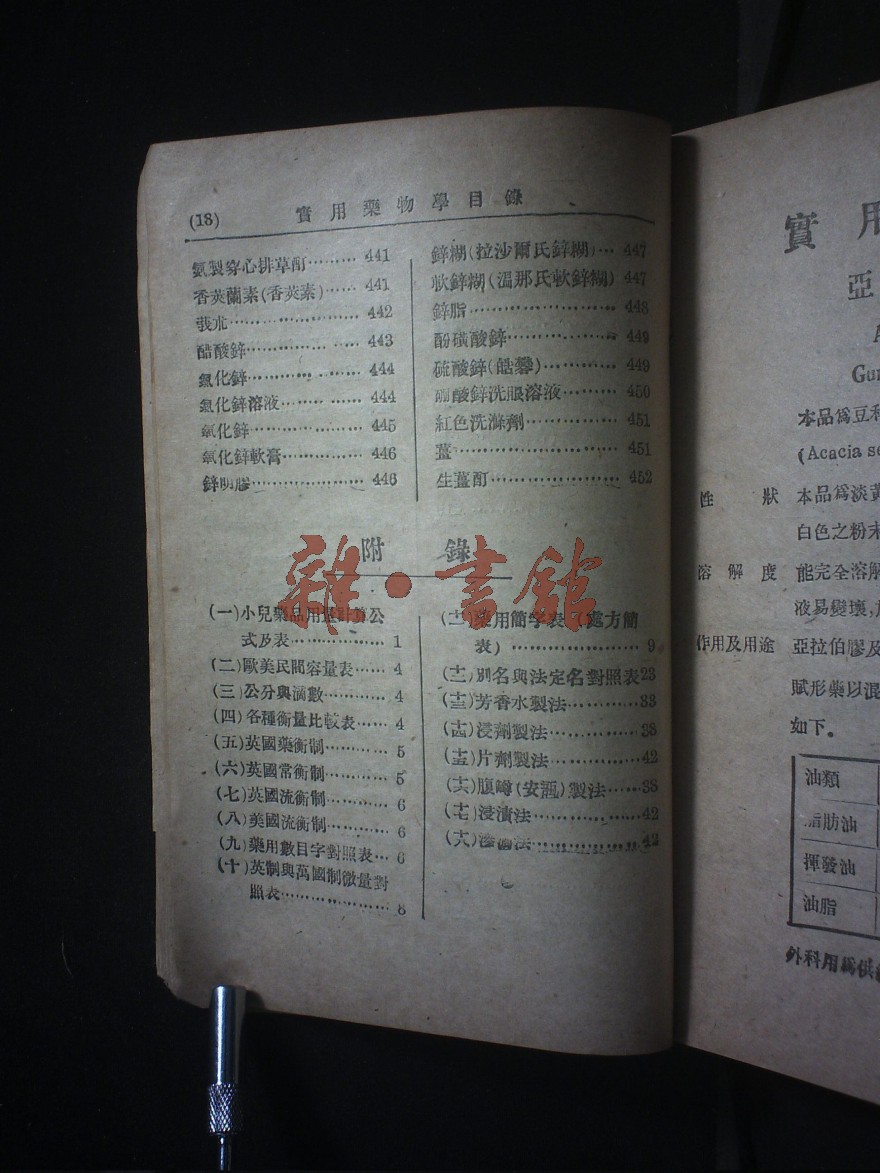 (18) 實用藥物學目錄
氨製穿心排草酊……… 441
香莢蘭素(香莢素)…… 441
莪朮…………………… 442
醋酸鋅………………… 443
氯化鋅………………… 444
氯化鋅溶液…………… 444
氧化鋅………………… 445
氧化鋅軟膏…………… 446
鋅明膠………………… 446
鋅糊(拉沙爾氏鋅糊)… 447
軟鋅糊(溫那氏軟鋅糊) 447
鋅脂…………………… 448
酚磺酸鋅……………… 449
硫酸鋅(皓礬)………… 449
硼酸鋅洗眼溶液……… 450
紅色洗滌劑…………… 451
薑……………………… 451
生薑酊………………… 452
附錄
雜·書館
(一)小兒藥品用量計算公
式及表……………… 1
(二)歐美民間容量表…… 4
(三)公分與滴數………… 4
(四)各種衡量比較表…… 4
(五)英國藥衡制………… 5
(六)英國常衡制………… 5
(七)英國流衡制………… 6
(八)美國流衡制………… 6
(九)藥用數目字對照表… 6
(十)英制與萬國制微量對
照表………………… 8
(十一)藥用簡字表(處方簡
表)………………… 9
(十二)別名與法定名對照表23
(十三)芳香水製法………… 33
(十四)浸劑製法…………… 38
(十五)片劑製法…………… 42
(十六)腹罇(安瓿)製法…… 38
(十七)浸漬法……………… 42
(十八)滲漉法……………… 42
實用
亞
A
Gu
本品為豆科
(Acacia se
性狀 本品為淡黃
白色之粉末
溶解度 能完全溶解
液易變壞,
作用及用途 亞拉伯膠及
賦形藥以混
如下。
油類
脂肪油
揮發油
油脂
外科用為供